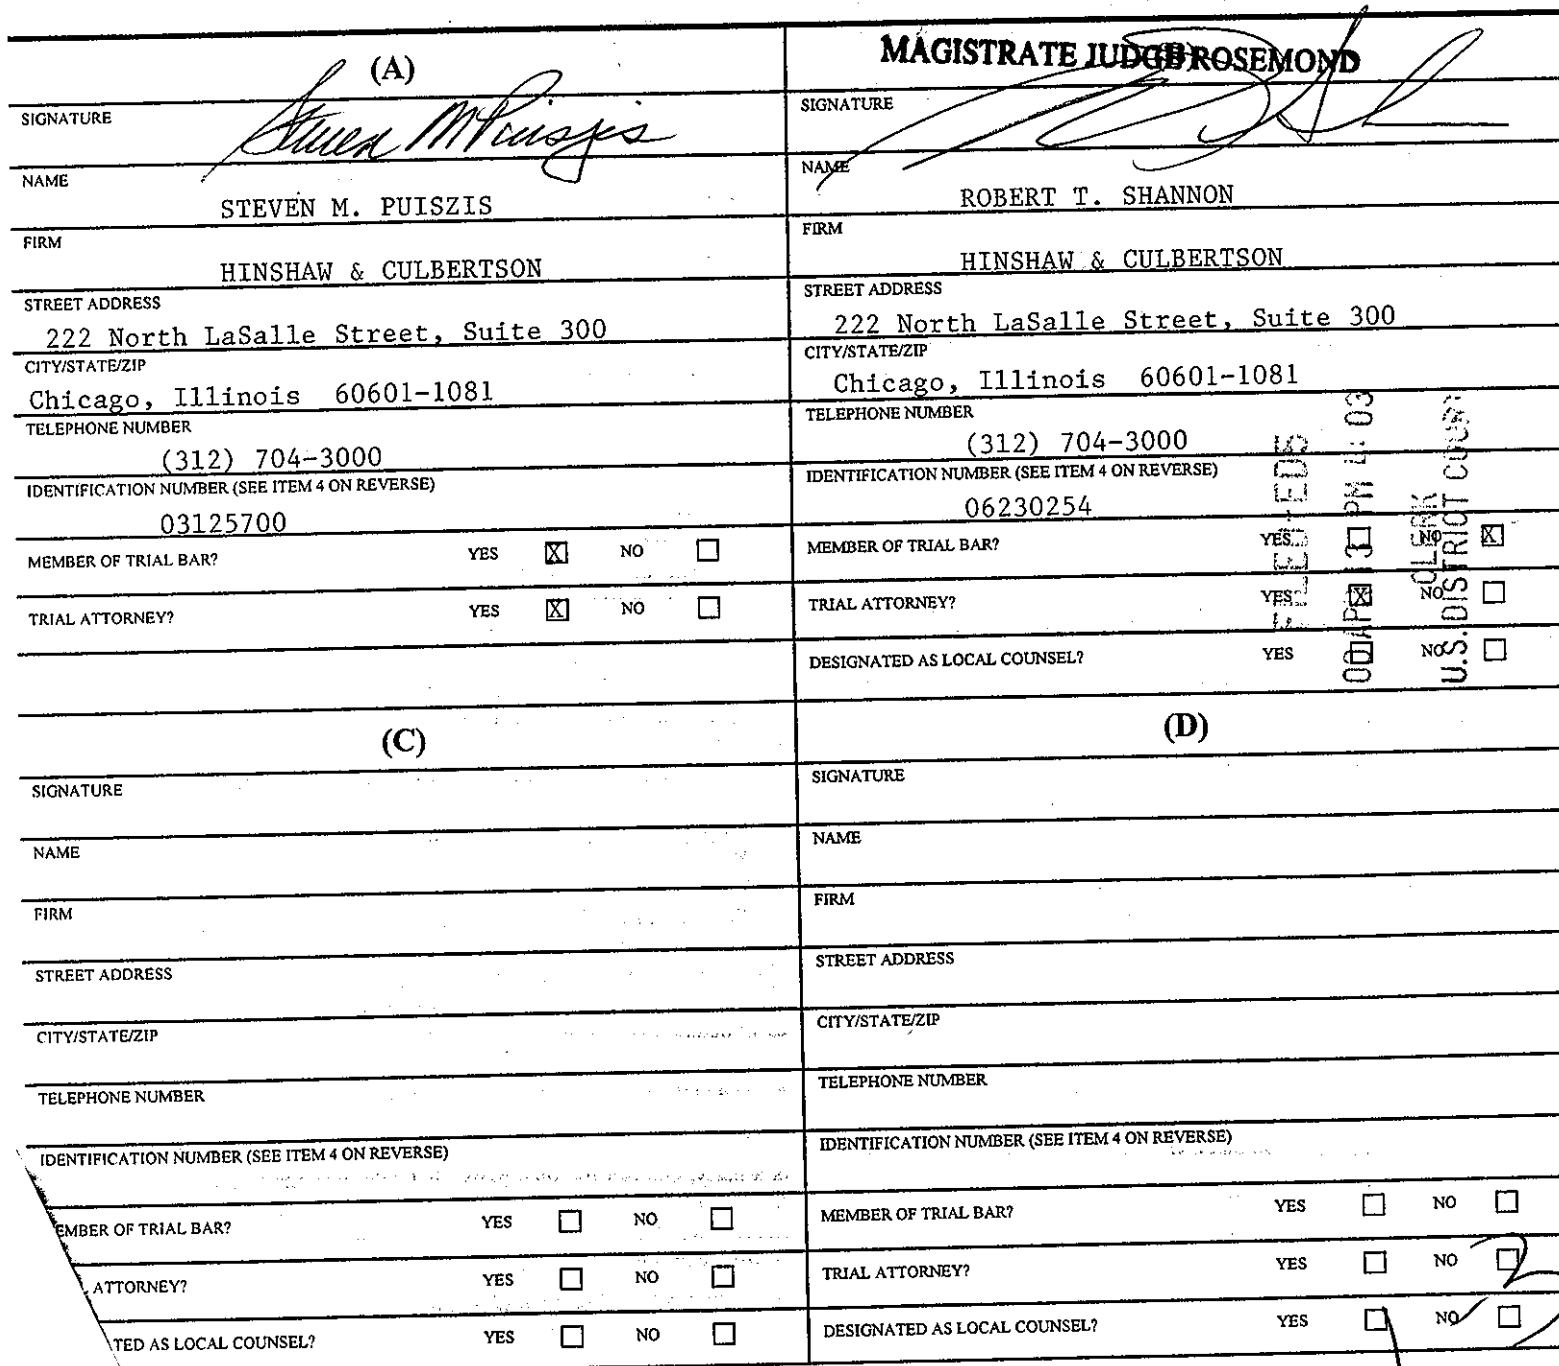 (A)
SIGNATURE
Steven M Puiszis
NAME
STEVEN M. PUISZIS
FIRM
HINSHAW & CULBERTSON
STREET ADDRESS
222 North LaSalle Street, Suite 300
CITY/STATE/ZIP
Chicago, Illinois 60601-1081
TELEPHONE NUMBER
(312) 704-3000
IDENTIFICATION NUMBER (SEE ITEM 4 ON REVERSE)
03125700
MEMBER OF TRIAL BAR? YES X NO
TRIAL ATTORNEY? YES X NO
MAGISTRATE JUDGE ROSEMOND
(B)
SIGNATURE
NAME
ROBERT T. SHANNON
FIRM
HINSHAW & CULBERTSON
STREET ADDRESS
222 North LaSalle Street, Suite 300
CITY/STATE/ZIP
Chicago, Illinois 60601-1081
TELEPHONE NUMBER
(312) 704-3000
IDENTIFICATION NUMBER (SEE ITEM 4 ON REVERSE)
06230254
MEMBER OF TRIAL BAR? YES NO X
TRIAL ATTORNEY? YES X NO
DESIGNATED AS LOCAL COUNSEL? YES NO
CLERK
U.S. DISTRICT COURT
(C)
SIGNATURE
NAME
FIRM
STREET ADDRESS
CITY/STATE/ZIP
TELEPHONE NUMBER
IDENTIFICATION NUMBER (SEE ITEM 4 ON REVERSE)
EMBER OF TRIAL BAR? YES NO
ATTORNEY? YES NO
TED AS LOCAL COUNSEL? YES NO
(D)
SIGNATURE
NAME
FIRM
STREET ADDRESS
CITY/STATE/ZIP
TELEPHONE NUMBER
IDENTIFICATION NUMBER (SEE ITEM 4 ON REVERSE)
MEMBER OF TRIAL BAR? YES NO
TRIAL ATTORNEY? YES NO
DESIGNATED AS LOCAL COUNSEL? YES NO